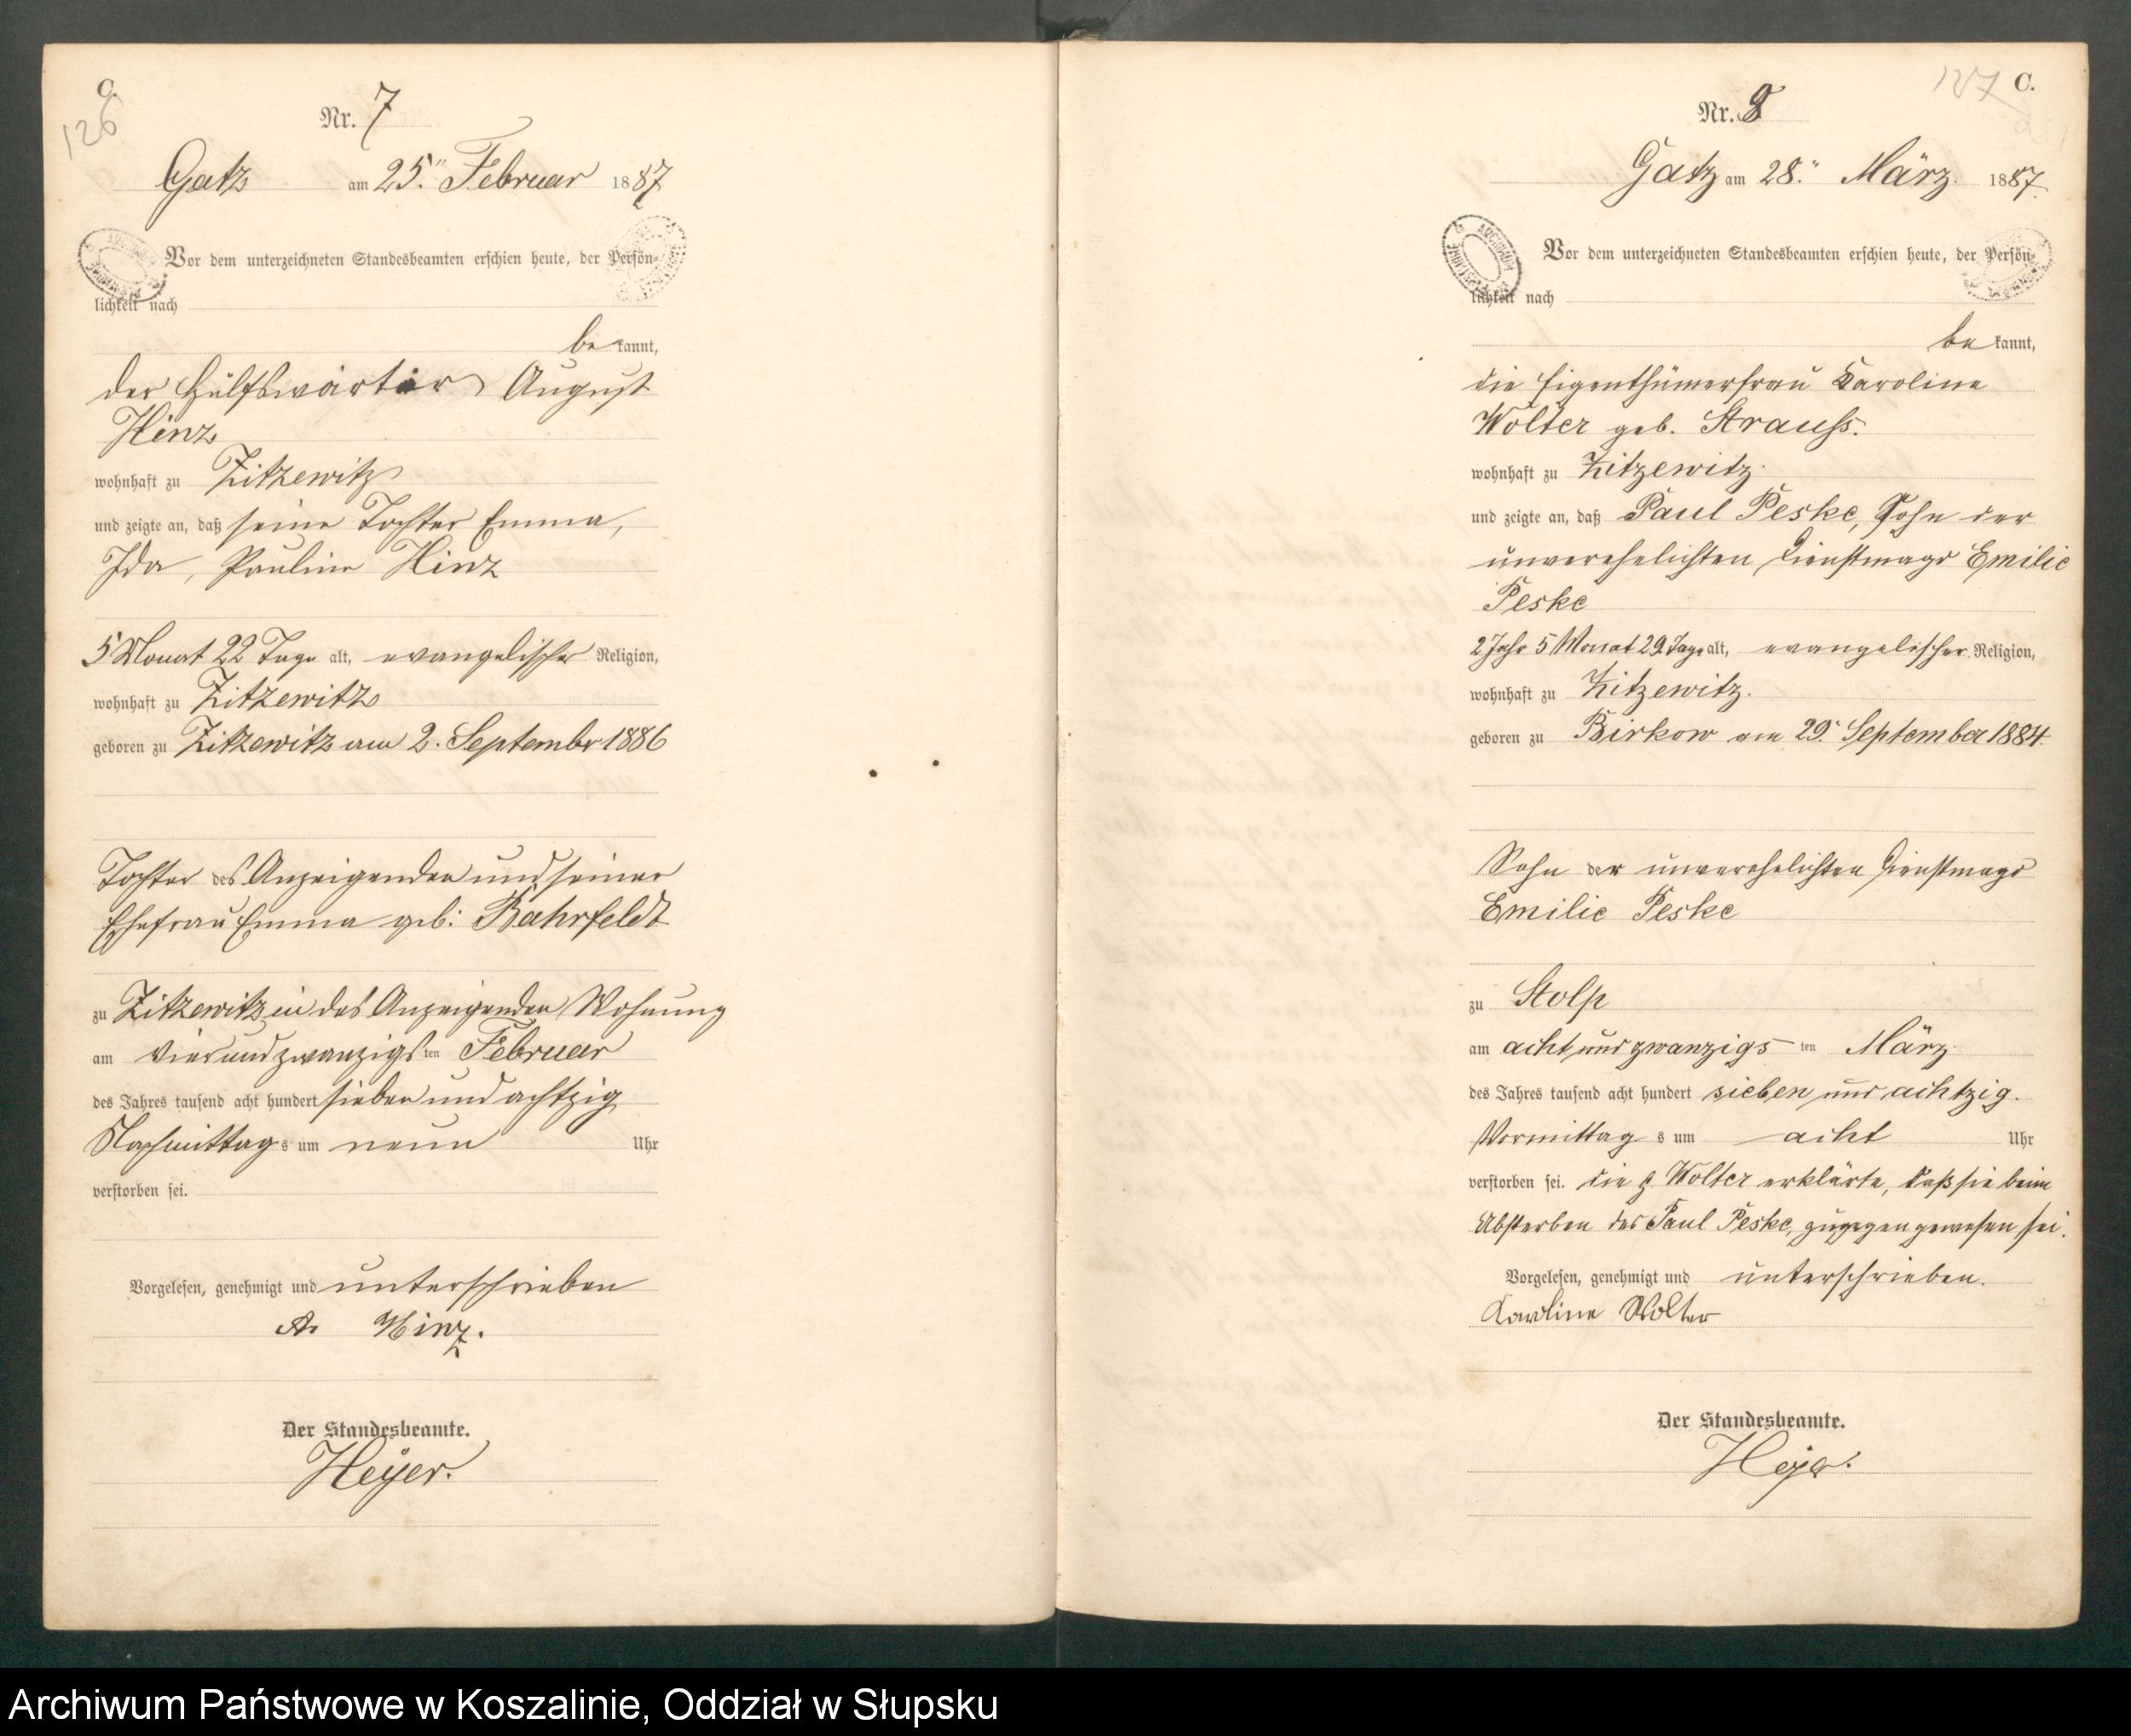 C.
126
Nr. 7
Gatz am 25ten Februar 1887
Vor dem unterzeichneten Standesbeamten erschien heute, der Persön-
lichkeit nach
be kannt,
der Hülfswärter August
Hinz
wohnhaft zu Zitzewitz
und zeigte an, daß seine Tochter Emma,
Ida, Pauline Hinz
5 Monat 22 Tage alt, evangelischer Religion,
wohnhaft zu Zitzewitz
geboren zu Zitzewitz am 2. Septembr 1886
Tochter des Anzeigenden und seiner
Ehefrau Emma geb: Bahrfeldt
zu Zitzewitz in des Anzeigenden Wohnung
am vierundzwanzigs ten Februar
des Jahres tausend acht hundert sieben und achtzig
Nachmittag s um neun Uhr
verstorben sei.
Vorgelesen, genehmigt und unterschrieben
A. Hinz.
Der Standesbeamte.
Heyer.
127 C.
Nr. 8
Gatz am 28. März. 1887.
Vor dem unterzeichneten Standesbeamten erschien heute, der Persön-
lichkeit nach
be kannt,
die Eigenthümerfrau Karoline
Wolter geb. Strauss.
wohnhaft zu Zitzewitz.
und zeigte an, daß Paul Peske, Sohn der
unverehelichten Dienstmagd Emilie
Peske
2 Jahr 5 Monat 29 Tage alt, evangelischer Religion,
wohnhaft zu Zitzewitz.
geboren zu Birkow am 29. September 1884.
Sohn der unverehelichten Dienstmagd
Emilie Peske
zu Stolp
am acht und zwanzigs ten März
des Jahres tausend acht hundert sieben und achtzig.
Vormittag s um acht Uhr
verstorben sei. die Wolter erklärte, daß sie beim
Absterben des Paul Peske, zugegen gewesen sei.
Vorgelesen, genehmigt und unterschrieben.
Karoline Wolter
Der Standesbeamte.
Heyer.
Archiwum Państwowe w Koszalinie, Oddział w Słupsku